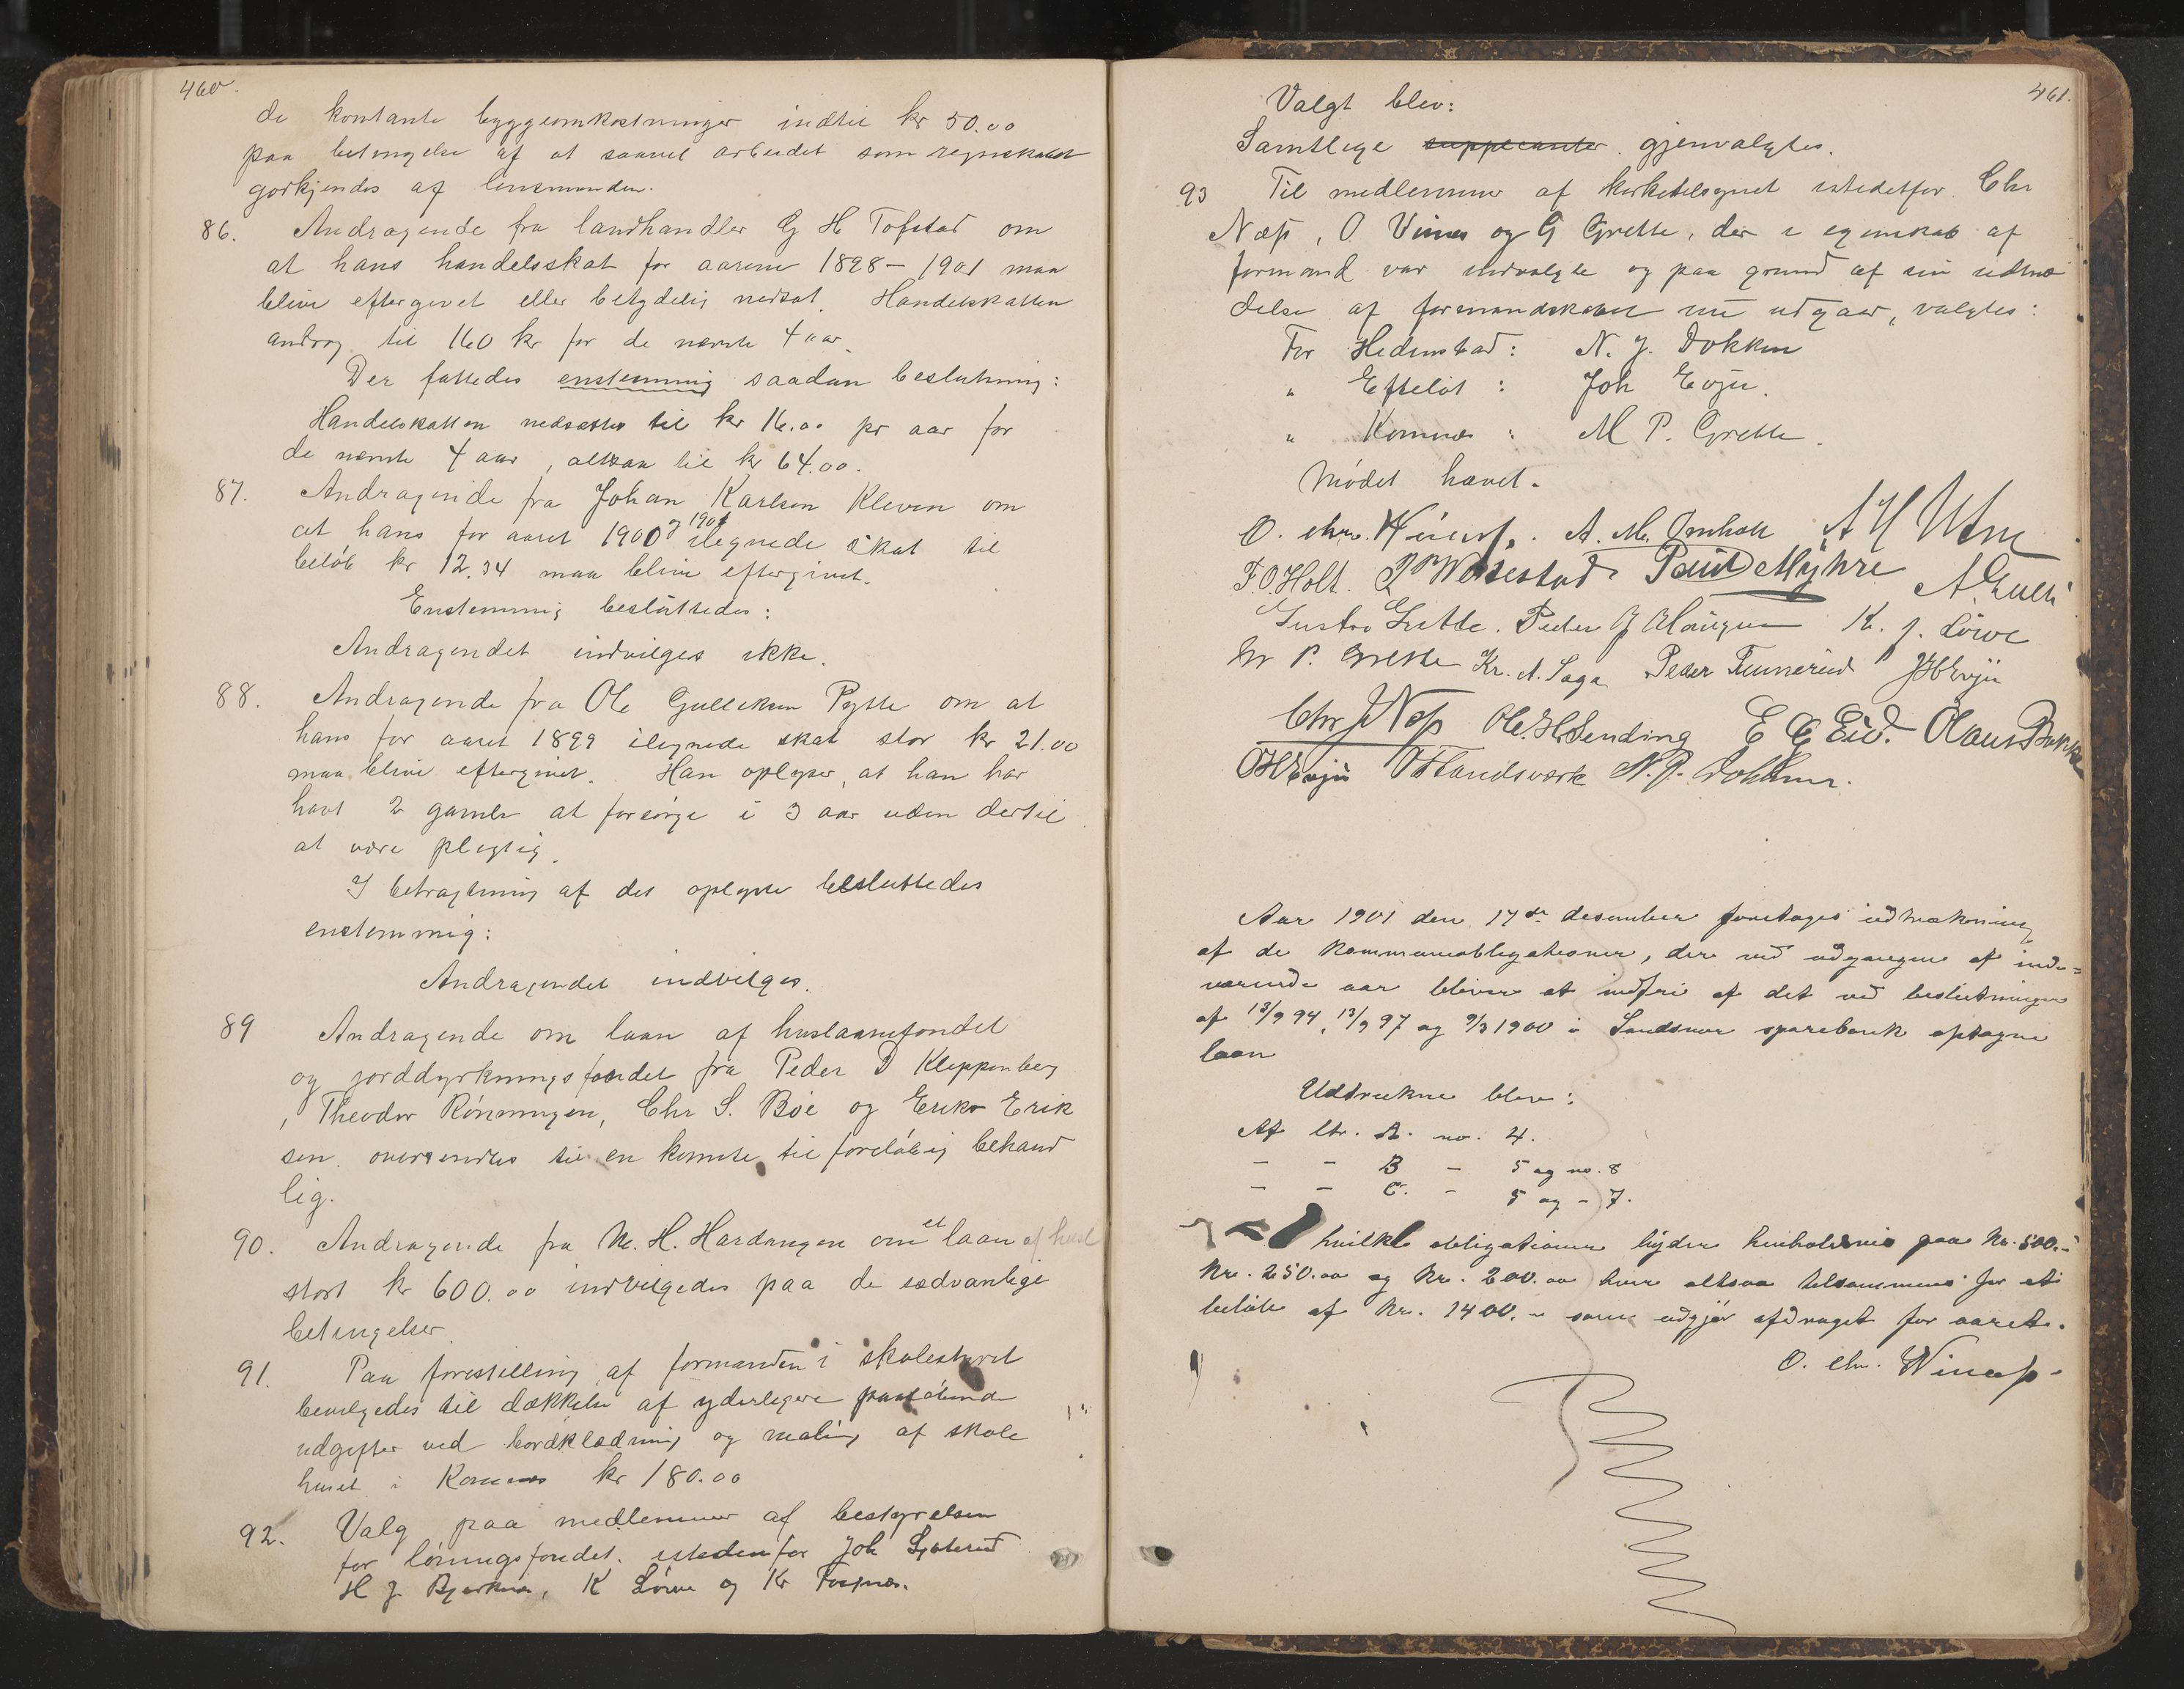 460.
de kontante byggeomkostninger indtil kr 50.00
paa betingelse af at saavel arbeidet som regnskabet
godkjendes af lensmanden.
86. Andragende fra landhandler G H Tofstad om
at hans handelsskat for aarene 1898 – 1901 maa
blive eftergivet eller betydelig nedsat. Handelskatten
androg til 160 kr for de nævnte 4 aar.
Der fattedes enstemmig saadan beslutning:
Handelskatten nedsættes til kr 16.00 pr aar for
de nævnte 4 aar, altsaa til kr 64.00.
87. Andragende fra Johan Karlsen Kleven om
at hans for aaret 1900 og 1901 ilignede skat til
beløb kr 12.34 maa blive eftergivet.
Enstemmig besluttedes:
Andragendet indvilges ikke.
88. Andragende fra Ole Gulleksen Pytte om at
hans for aaret 1899 ilignede skat stor kr 21.00
maa blive eftergivet. Han oplyser, at han har
havt 2 gamle at forsørge i 3 aar uden dertil
at være pligtig.
I betragtning af det oplyste besluttedes
enstemmig:
Andragendet indvilges.
89 Andragende om laan af huslaanefondet
og jorddyrkningsfondet fra Peder D Kleppenberg
, Theodor Rønningen, Chr S. Bøe og Erik Erik
sen oversendes til en komite til foreløbig behand
lig.
90. Andragende fra M. H. Hardangen om et laan af husl
stort kr 600.00 indvilgedes paa de sædvanlige
betingelser.
91. Paa forestilling af formanden i skolestyret
bevilgedes til dækkelse af yderligere paaløbende
udgifter ved bordklædning og maling af skole
huset i Komnes kr 180.00
92. Valg paa medlemmer af bestyrelsen
for lønningsfondet. istedenfor Joh
H J Bjerknes, K Løve og Kr
461.
Valgt blev:
Samtlige suppleanter gjenvalgtes.
93 Til medlemmer af kirketilsynet istedetfor Chr
Næss, O Vinnes og G Grette, der i egenskab af
formænd var indvalgte og paa grund af sin udtræ
delse af formandskabet nu udgaar, valgtes:
For Hedenstad: N. J. Dokken
" Efteløt: Joh Evju.
" Komnes: M P. Grette.
Mødet hævet.
O. Chr. A. M. Omholt
F. O. Holt. Paul Myhre A. Gulli
Gustav Grette. Peder K. J. Løwe
M P. Grette Kr. A. Saga Peder JHEvju
Chr J Næss Ole. H. Sending E G Eid. Olaus Bakke
OHEvju O Handsværk N. J. Dokken.
Aar 1901 den 17de desember foretages udtrækning
af de kommuneobligationer, der ved udgangen af inde=
værende aar bliver at indfri af det ved beslutninger
af 13/9 94, 13/9 97 og 9/3 1900 i Sandsvær sparebank optagne
laan
Udtrukne blev:
Af ltr. A. no. 4.
– – B – 5 og no. 8
– – C. – 5 og – 7.
hvilke obligationer lyder henholdsvis paa kr. 500.-
kr. 250.00 og kr. 200.00 hver altsaa tilsammens for et
beløb af kr. 1400.- som udgjør afdraget for aaret.
O. Chr.